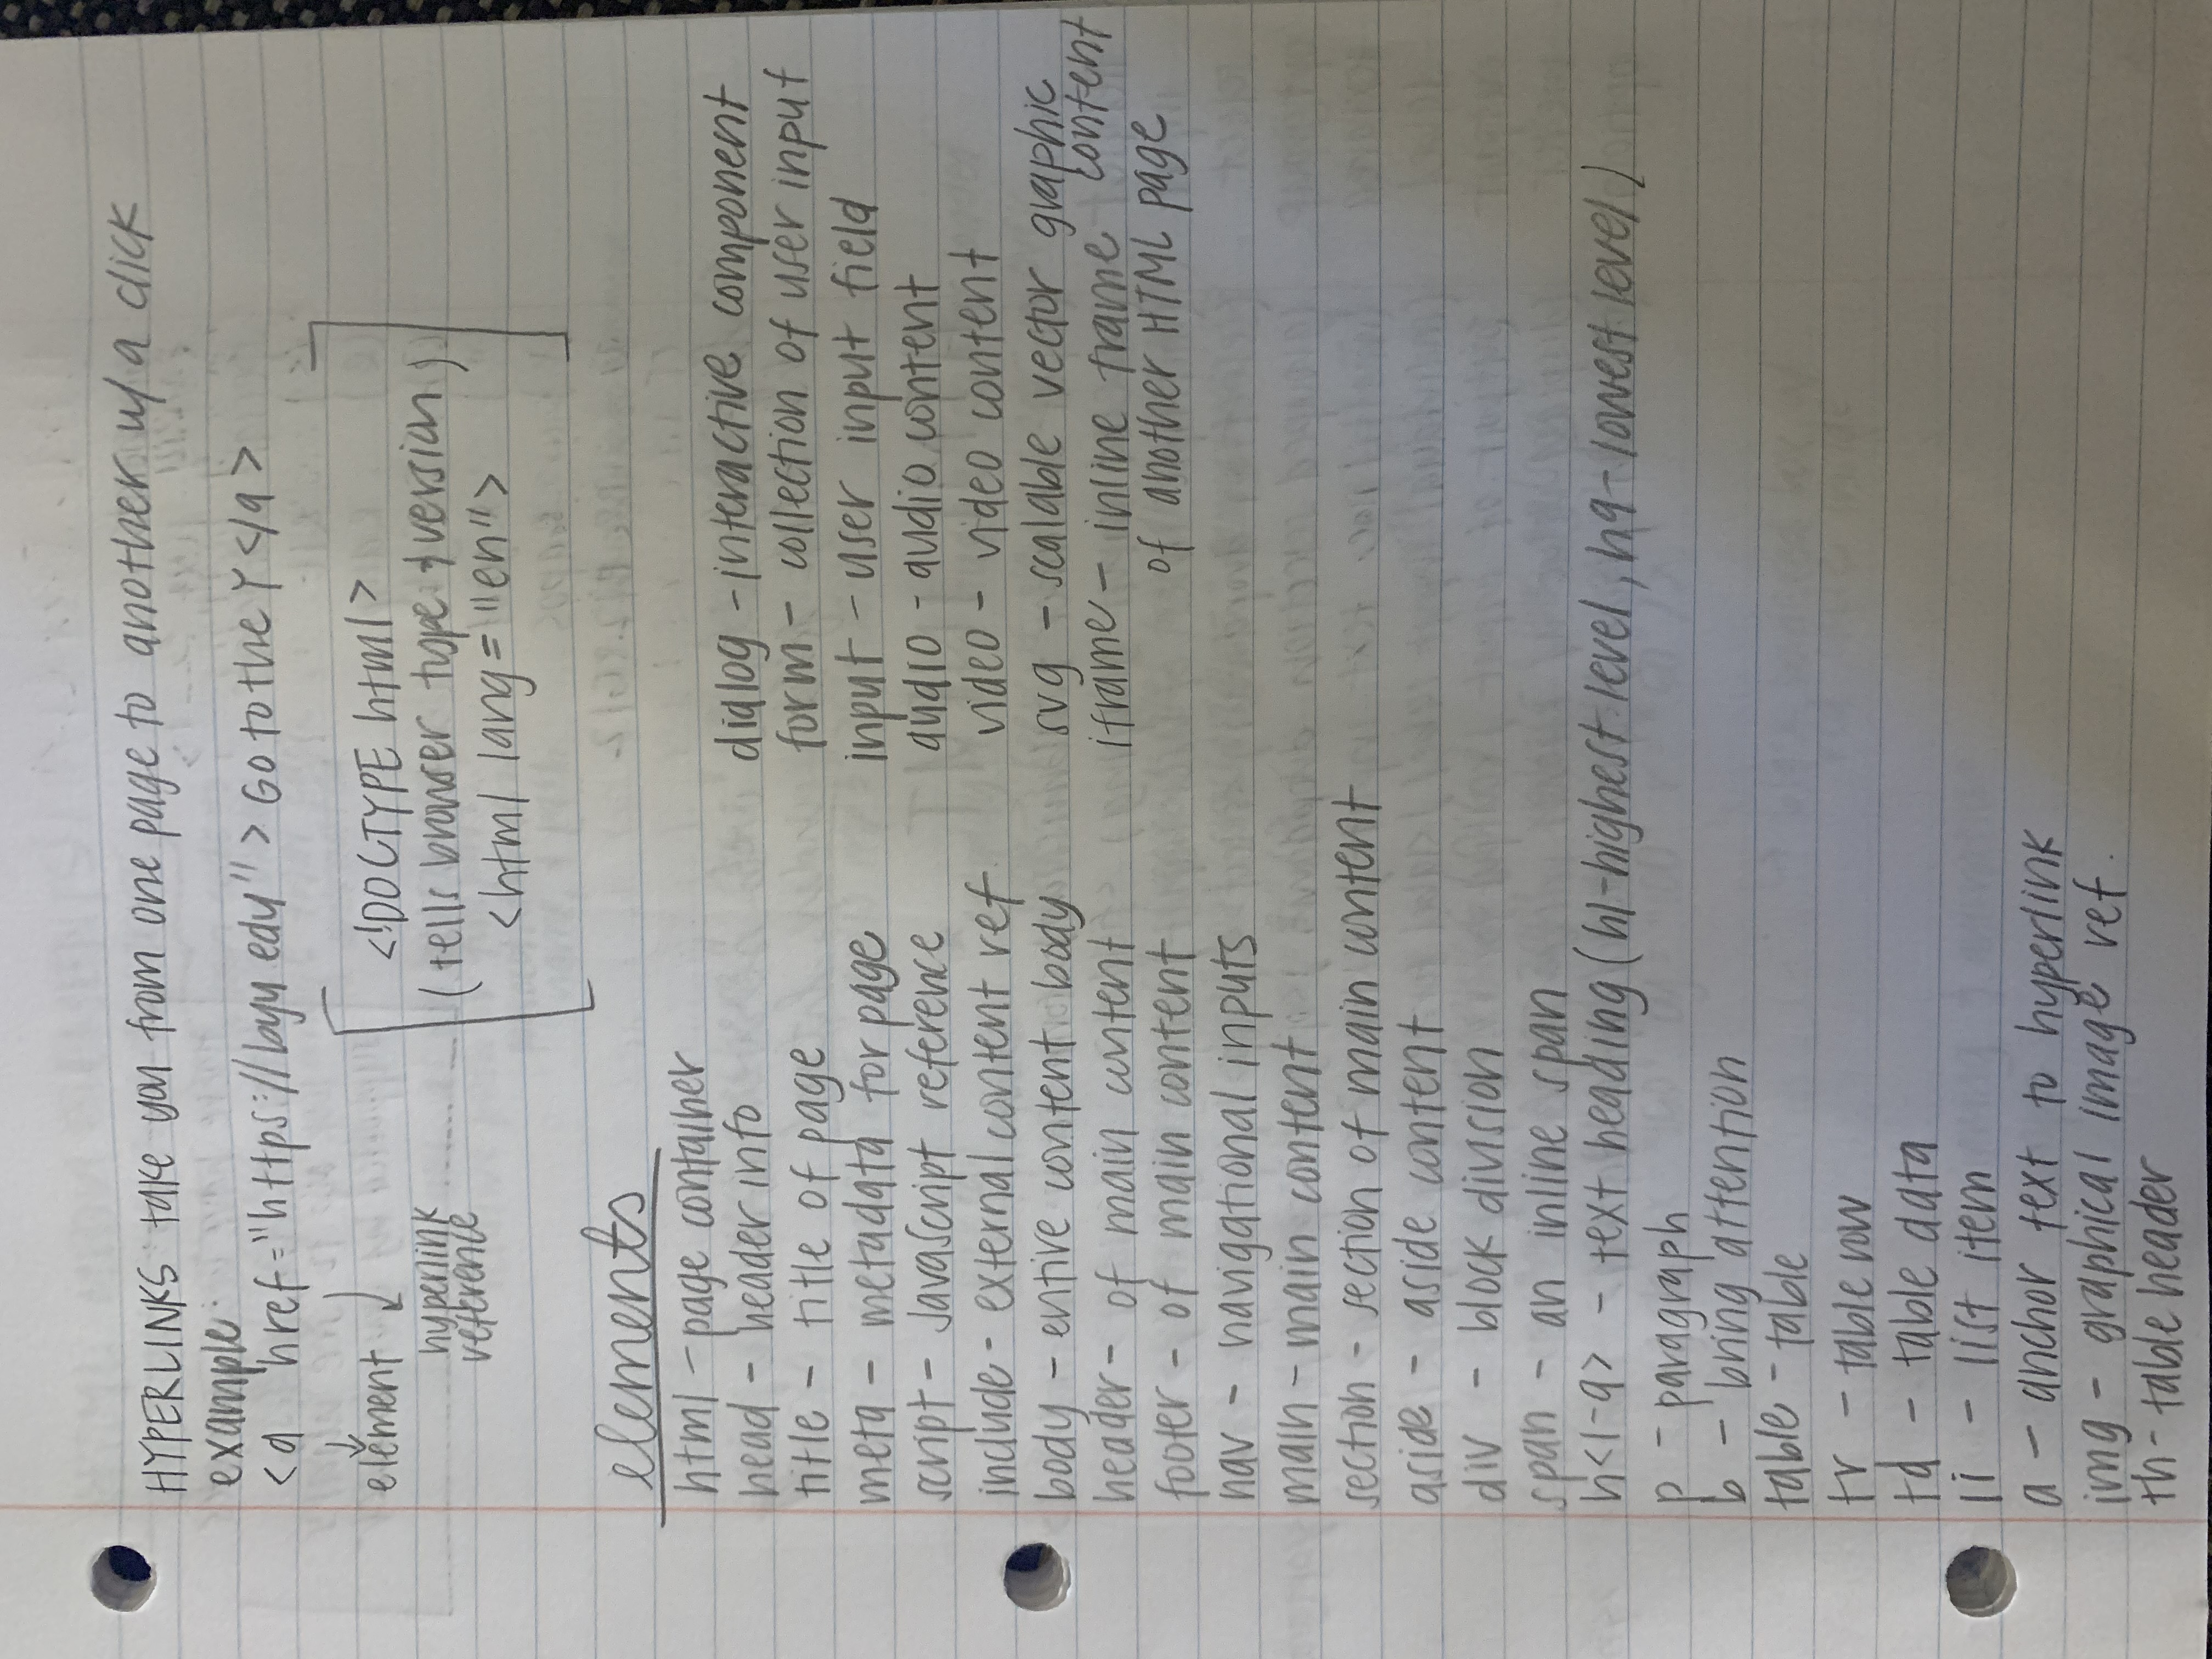 HYPERLINKS take you from one page to another w/ a click
example:
<a href="https://byu.edu"> Go to the Y </a>
element
hyperlink
reference
<!DOCTYPE html>
(tells browser type + version)
<html lang="en">
elements
html - page container
head - header info
title - title of page
meta - metadata for page
script - JavaScript reference
include - external content ref
body - entire content body
header - of main content
footer - of main content
nav - navigational inputs
main - main content
section - section of main content
aside - aside content
div - block division
span - an inline span
h<1-9> - text heading (h1-highest level, h9-lowest level)
p - paragraph
b - bring attention
table - table
tr - table row
td - table data
li - list item
a - anchor text to hyperlink
img - graphical image ref.
th - table header
dialog - interactive component
form - collection of user input
input - user input field
audio - audio content
video - video content
svg - scalable vector graphic
content
iframe - inline frame
of another HTML page